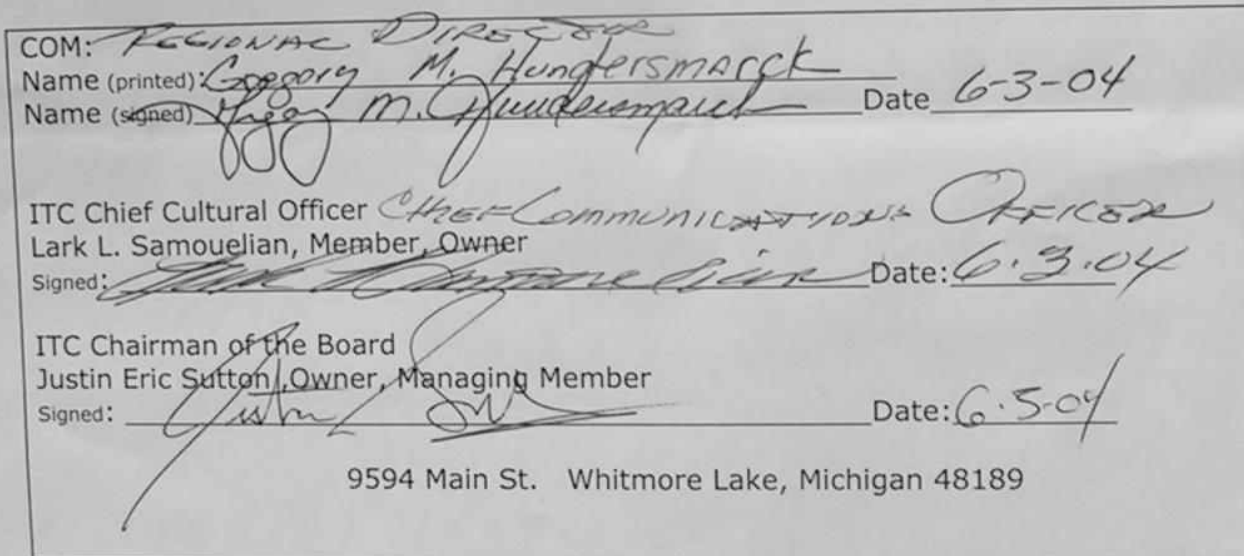 COM: REGIONAL DIRECTOR
Name (printed): Gregory M. Hundersmarck
Name (signed) Gregory M. Hundersmarck Date 6-3-04
ITC Chief Cultural Officer CHIEF COMMUNICATIONS OFFICER
Lark L. Samouelian, Member, Owner
Signed: Lark L Samouelian Date: 6.3.04
ITC Chairman of the Board
Justin Eric Sutton, Owner, Managing Member
Signed: Justin E Sutton Date: 6.5-04
9594 Main St. Whitmore Lake, Michigan 48189